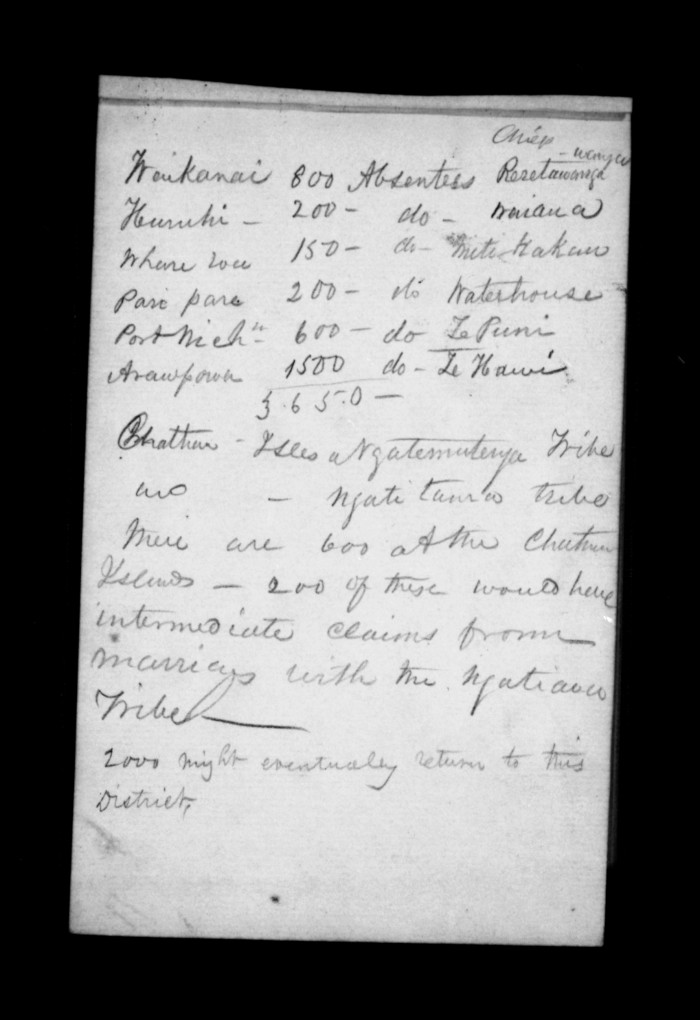 Chiep
- wanga
Waikanai 800 Absentees Reretawanga
Huruhi - 200 - do - Waiaua
Whare 150 - do - Miti Kakau
Pari para 200 - do Waterhouse -
Port Nich'n - 600 - do Te Puni
Arawpowa 1500 do - Te Hawi
3.650 -
Chatham - Isles a Ngatemutunga Tribe
and - Ngati tribe
There are 600 at the Chatham
Islands - 200 of these would have
intermediate claims from
marriages with the Ngatiawa
Tribe
2000 might eventualey return to this
District,